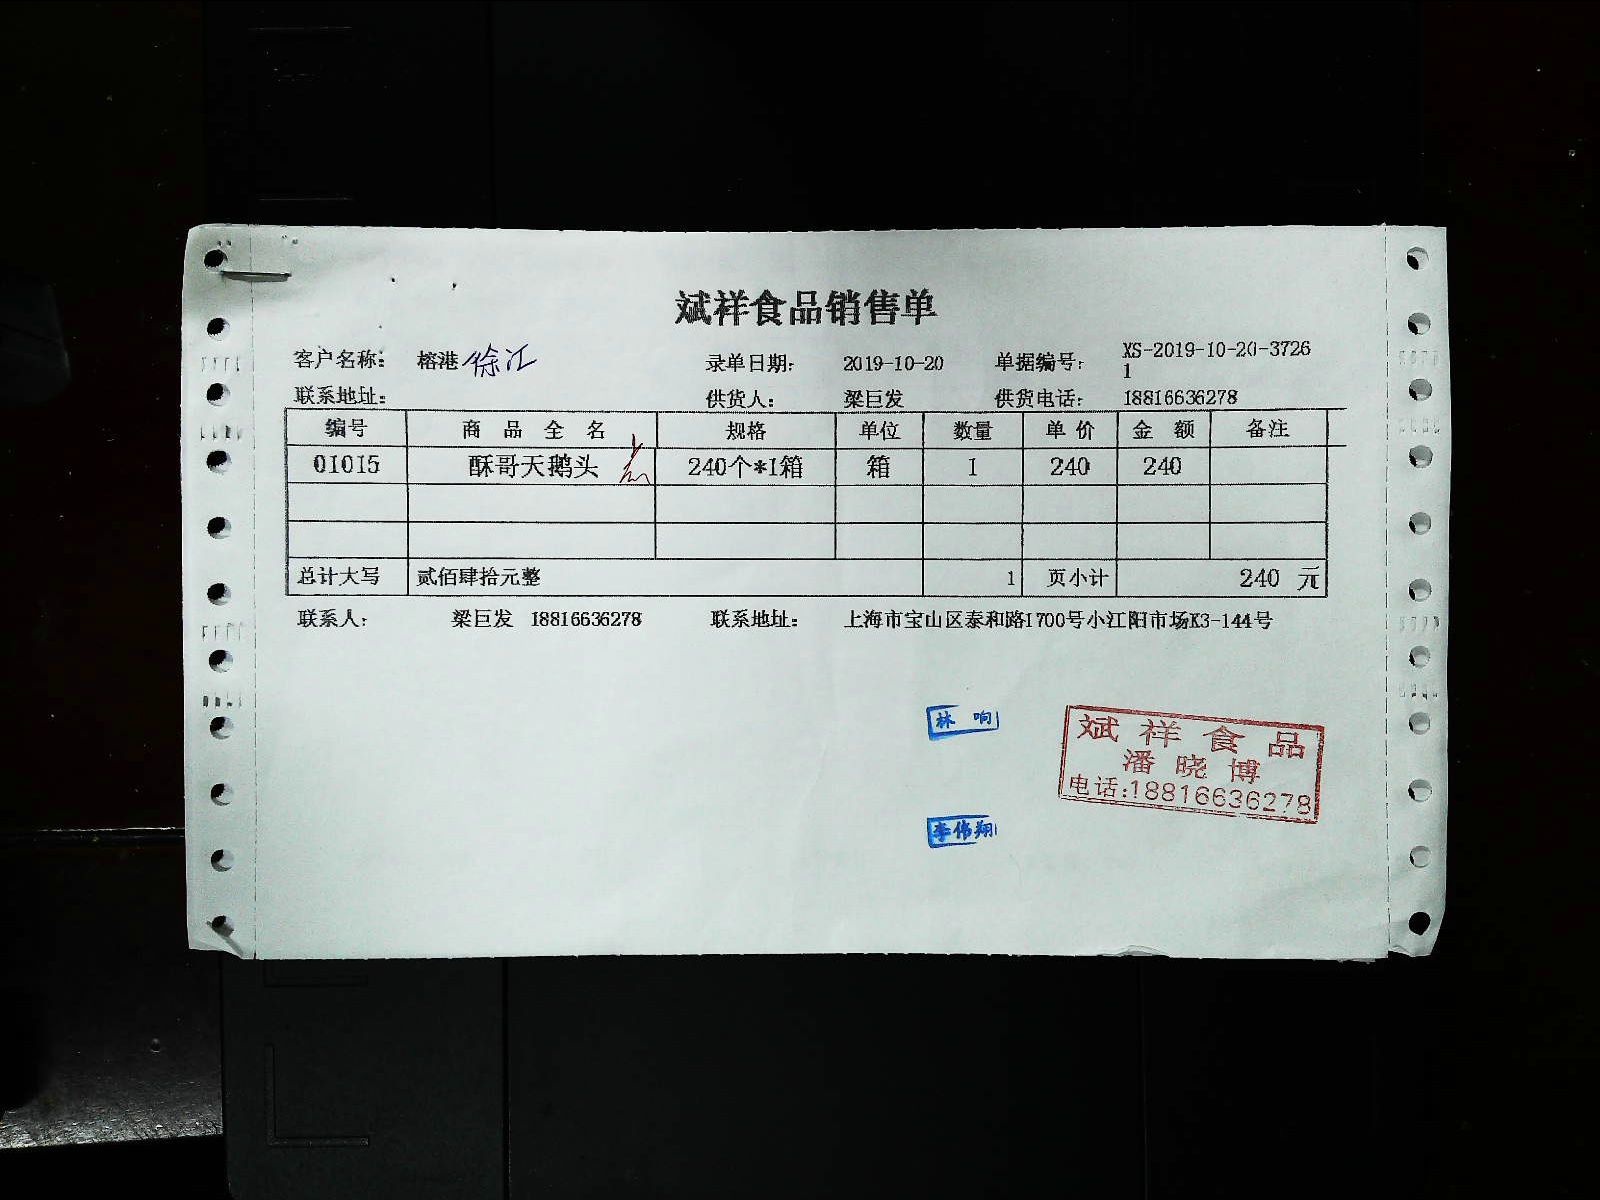 斌祥食品销售单
客户名称： 榕港 徐汇 录单日期： 2019-10-20 单据编号： XS-2019-10-20-3726
1
联系地址： 供货人： 梁巨发 供货电话： 18816636278
编号 商品全名 规格 单位 数量 单价 金额 备注
01015 酥哥天鹅头 240个*1箱 箱 1 240 240
总计大写 贰佰肆拾元整 1 页小计 240 元
联系人： 梁巨发 18816636278 联系地址： 上海市宝山区泰和路1700号小江阳市场K3-144号
林响
斌祥食品
潘晓博
电话:18816636278
李伟翔